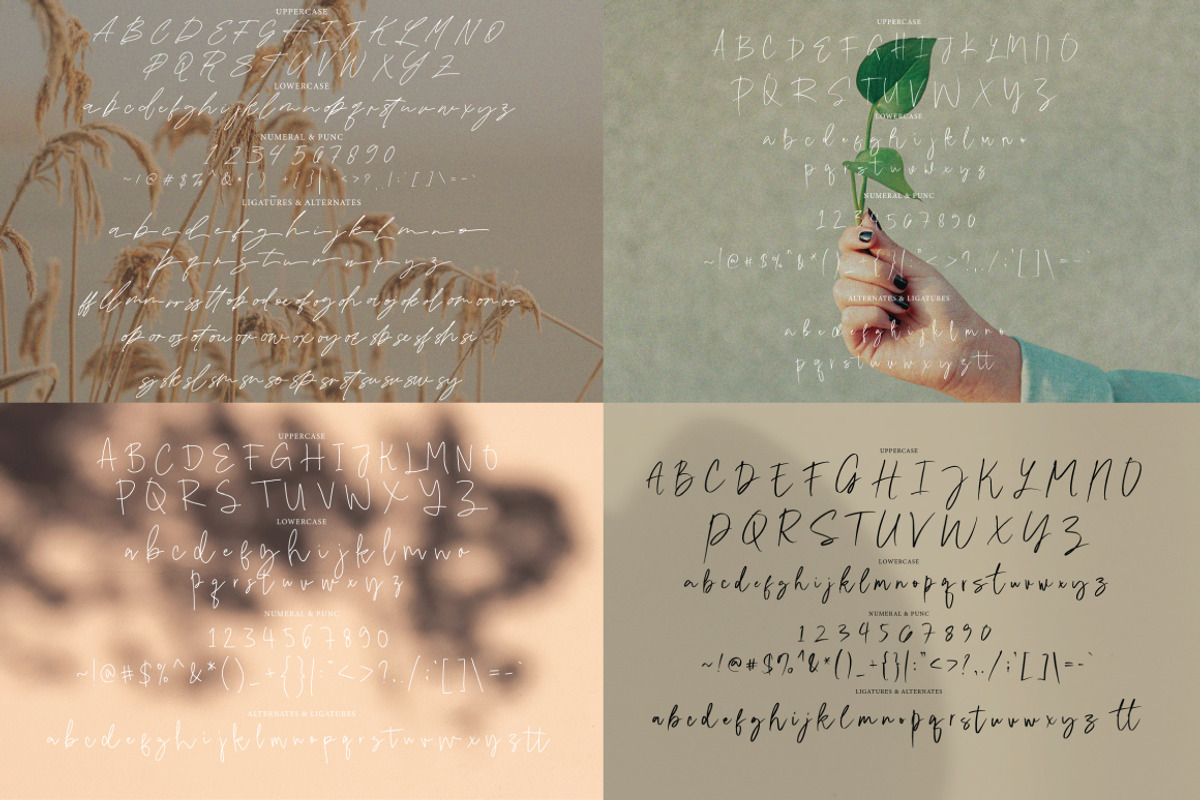 UPPERCASE
A B C D E F G H I J K L M N O
P Q R S T U V W X Y Z
LOWERCASE
a b c d e f g h i j k l m n o p q r s t u v w x y z
NUMERAL & PUNC
1 2 3 4 5 6 7 8 9 0
~ ! @ # $ % ^ & * ( ) _ + { } | : " < > ? , . / ; ' [ ] \ = - `
LIGATURES & ALTERNATES
a b c d e f g h i j k l m n o
p q r s t u v w x y z
ff ll mm rr ss tt ob od oe of og oh oi oj ok ol om on oo
op or os ot ou ov ow ox oy oz sb se sf sh si
sj sk sl sm sn so sp sr st su sv sw sy
UPPERCASE
A B C D E F G H I J K L M N O
P Q R S T U V W X Y Z
LOWERCASE
a b c d e f g h i j k l m n o
p q r s t u v w x y z
NUMERAL & PUNC
1 2 3 4 5 6 7 8 9 0
~ ! @ # $ % ^ & * ( ) _ + { } | : " < > ? , . / ; ' [ ] \ = - `
ALTERNATES & LIGATURES
a b c d e f g h i j k l m n o
p q r s t u v w x y z tt
UPPERCASE
A B C D E F G H I J K L M N O
P Q R S T U V W X Y Z
LOWERCASE
a b c d e f g h i j k l m n o
p q r s t u v w x y z
NUMERAL & PUNC
1 2 3 4 5 6 7 8 9 0
~ ! @ # $ % ^ & * ( ) _ + { } | : " < > ? , . / ; ' [ ] \ = - `
ALTERNATES & LIGATURES
a b c d e f g h i j k l m n o p q r s t u v w x y z tt
UPPERCASE
A B C D E F G H I J K L M N O
P Q R S T U V W X Y Z
LOWERCASE
a b c d e f g h i j k l m n o p q r s t u v w x y z
NUMERAL & PUNC
1 2 3 4 5 6 7 8 9 0
~ ! @ # $ % ^ & * ( ) _ + { } | : " < > ? , . / ; ' [ ] \ = - `
LIGATURES & ALTERNATES
a b c d e f g h i j k l m n o p q r s t u v w x y z tt